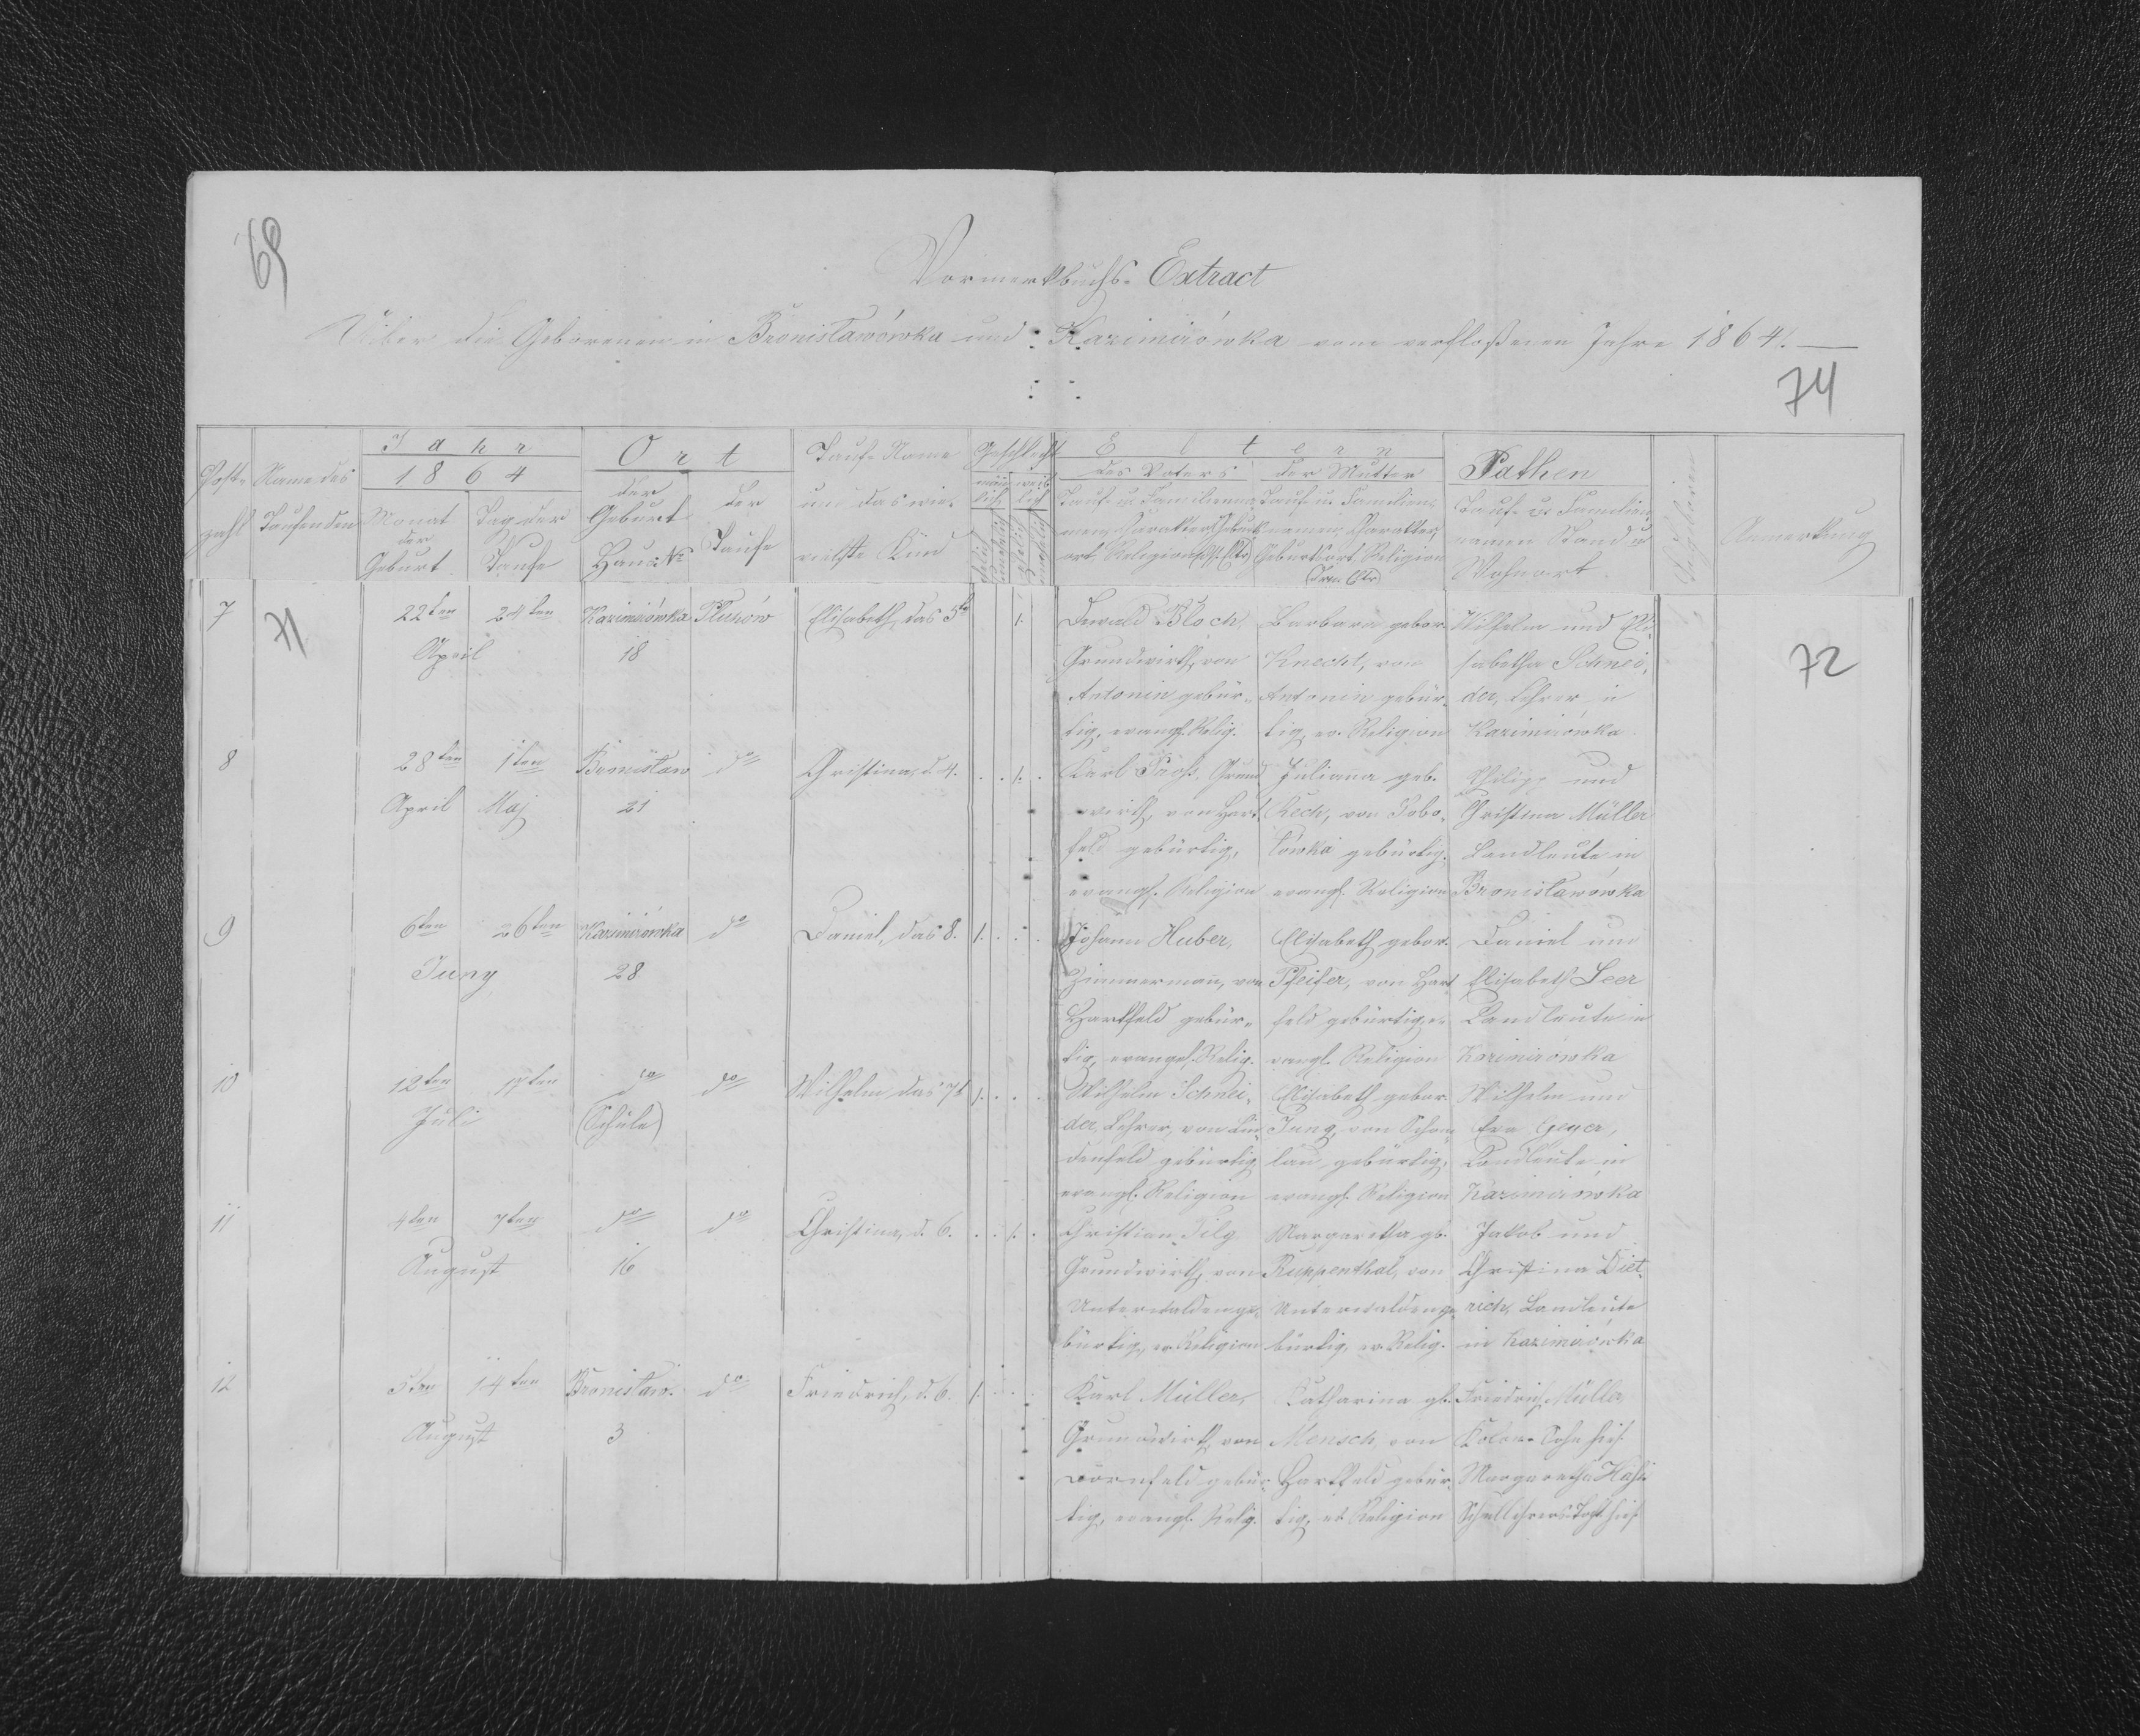 69
Vormerkbuchs-Extract
Über die Geborenen in Bronisławówka und Kazimirówka vom verfloßenen Jahre 1864.
74
Post-zahl
Name des Taufenden
Jahr
1864
Monat der Geburt
Tag der Taufe
Ort
der Geburt Haus N:
der Taufe
Tauf-Name und das wie-vielste Kind
Geschlecht
männ-lich
weib-lich
Eltern
des Vaters
Tauf- u. Familienna-
men, Charakter, Geburts-
ort, Religion
der Mutter
Tauf- u. Familien-
namen, Charakter,
Geburtsort, Religion
Pathen
Tauf- u. Familien-
namen Stand u.
Wohnort
Anmerkung
7
71
22ten
24ten
April
Kazimirówka
18
Płuhów
Elisabeth, das 5te
1.
Dewald Bloch,
Grundwirth, von
Antonin gebür-
tig, evangl. Relig.
Barbara gebor.
Knecht, von
Antonin gebür-
tig, ev. Religion
Wilhelm und Eli-
sabetha Schnei-
der, Lehrer in
Kazimirówka
72
8
28ten
1ten
April
Maj
Bronisław
21
do
Christina, d. 4.
1.
Karl Groß, Grund
wirth, von Hart-
feld gebürtig,
evangl. Religion
Juliana geb.
Rech, von
gebürtig,
evangl. Religion
Philipp und
Christina Müller
Landleute in
Bronisławówka
9
6ten
26ten
Juny
Kazimirówka
28
do
Daniel, das 8.
1.
Johann Huber,
Zimmermann, von
Hartfeld gebür-
tig, evangel. Relig.
Elisabeth gebor.
Pfeifer, von Hart
feld gebürtig, e-
vangl. Religion
Daniel und
Elisabeth Seer
Landleute in
Kazimirówka
10
12ten
17ten
Juli
do
(Schule)
do
Wilhelm das 7t
1.
Wilhelm Schnei-
der, Lehrer, von Lin-
denfeld gebürtig
evangl. Religion
Elisabeth gebor.
Jung, von Schom
lau, gebürtig,
evangl. Religion
Wilhelm und
Eva Geyer,
Landleute in
Kazimirówka
11
4ten
7ten
August
do
16
do
Christina, d. 6.
1.
Christian Filg
Grundwirth, von
Unterwalden ge-
bürtig, ev. Religion
Margaretha gb.
Ruppenthal, von
Unterwalden ge
bürtig, ev. Relig.
Jakob und
Christina Diet-
rich, Landleute
in Kazimirówka
12
5ten
14ten
August
Bronisław.
3
do
Friedrich, d. 6.
1.
Karl Müller,
Grundwirth, von
Dornfeld gebür-
tig, evangl. Relig.
Katharina gb.
Mensch, von
Hartfeld gebür-
tig, ev. Religion
Friedrich Müller
Sohn hies.
Margaretha
Schullehrers hies.